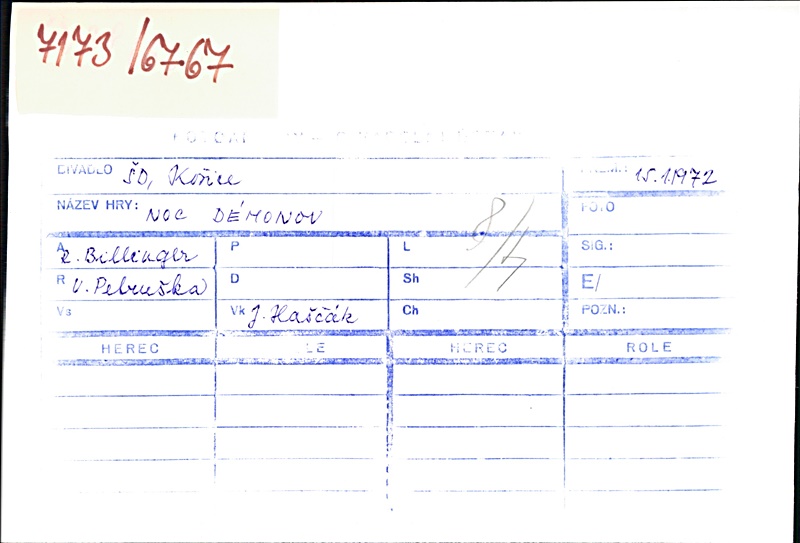 7173/6767
DIVADLO ŠD, Košice 15.1.1972
NÁZEV HRY: NOC DÉMONOV FOTO
A R. Billinger P L SIG.:
R V. Petruška D Sh E/
Vs Vk J. Haščák Ch POZN.:
HEREC HEREC ROLE